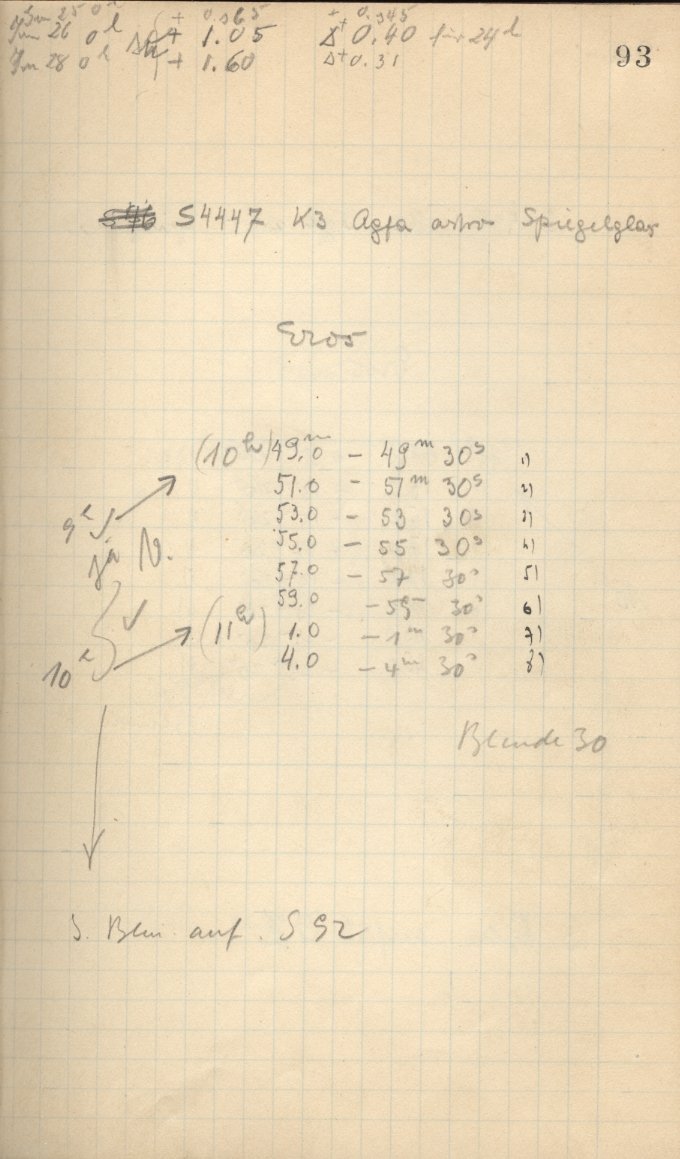 Jan 25 0ʰ + 0.565 + 0.345
Jan 26 0ʰ Δu + 1.05 Δ+ 0.40 für 24ʰ
Jan 28 0ʰ + 1.60 Δ+ 0.31
93
S4447 K3 Agfa astro Spiegelglas
Eros
(10ʰ) 49.ᵐ0 – 49ᵐ 30ˢ 1)
51.0 – 51ᵐ 30ˢ 2)
53.0 – 53 30ˢ 3)
9ʰ
55.0 – 55 30ˢ 4)
ja N.
57.0 – 57 30ˢ 5)
59.0 – 59 30ˢ 6)
(11ʰ) 1.0 – 1ᵐ 30ˢ 7)
10ʰ
4.0 – 4ᵐ 30ˢ 8)
Blende 30
s. Bem. auf. S 92